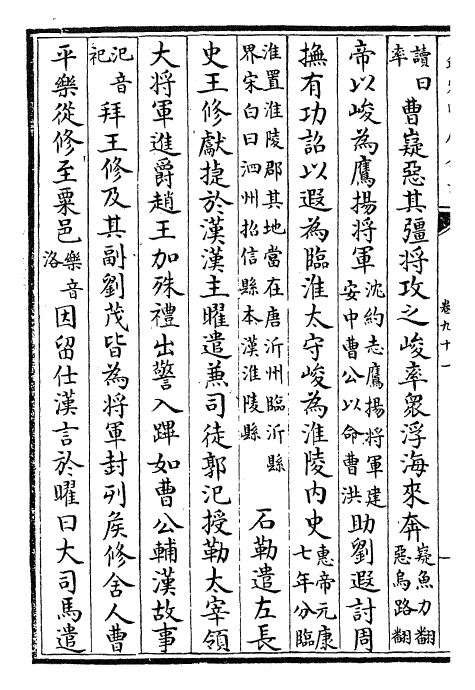 卷九十一
讀曰率曹嶷惡其彊將攻之峻率衆浮海來奔嶷魚力翻惡烏路翻
帝以峻為鷹揚將軍沈約志鷹揚將軍建安中曹公以命曹洪助劉遐討周
撫有功詔以遐為臨淮太守峻為淮陵内史惠帝元康七年分臨
淮置淮陵郡其地當在唐沂州臨沂縣界宋白曰泗州招信縣本漢淮陵縣石勒遣左長
史王修獻捷於漢漢主曜遣兼司徒郭汜授勒太宰領
大將軍進爵趙王加殊禮出警入蹕如曹公輔漢故事
汜音祀拜王修及其副劉茂皆為將軍封列侯修舍人曹
平樂從修至粟邑樂音洛因留仕漢言於曜曰大司馬遣